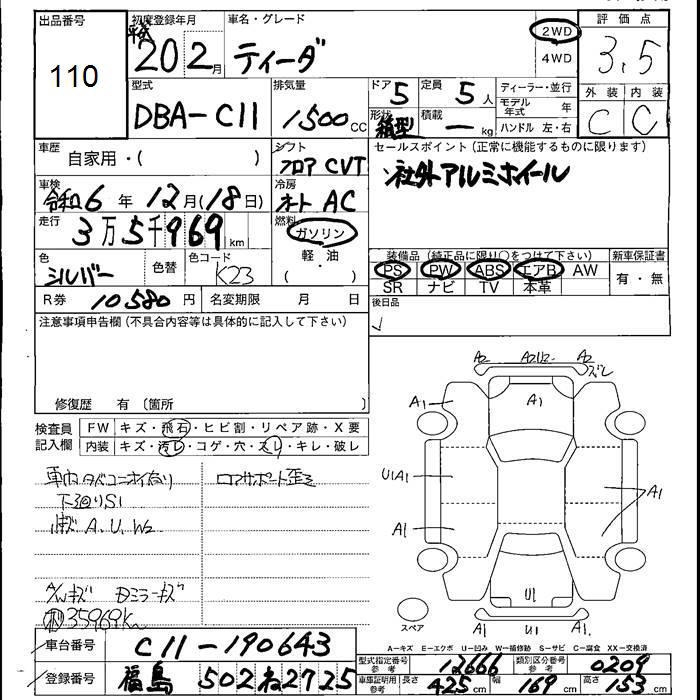 出品番号
110
初度登録年月
平成
20 2月
車名・グレード
ティーダ
2WD
4WD
評価点
3.5
型式
DBA-C11
排気量
1500cc
ドア
5
定員
5人
形状
箱型
積載
ー kg
ディーラー・並行
モデル年式 年
ハンドル 左・右
外装 内装
C C
車歴
自家用・( )
シフト
フロア CVT
セールスポイント(正常に機能するものに限ります)
社外アルミホイール
車検
令和6年12月(18日)
冷房
オート AC
走行
3万5千969km
燃料
ガソリン
軽・油
・
( )
色
シルバー
色替
色コード
K23
装備品(純正品に限り○をつけて下さい)
PS PW ABS エアB AW
SR ナビ TV 本革
新車保証書
有・無
R券 10580円
名変期限 月 日
後日品
注意事項申告欄(不具合内容等は具体的に記入して下さい)
修復歴 有〔箇所 〕
検査員
記入欄
FW キズ・飛石・ヒビ割・リペア跡・X要
内装 キズ・汚レ・コゲ・穴・スレ・キレ・破レ
車内タバコニオイ有り
下廻りS1
小キズ A.U.W2
A/Wキズ Dミラーキズ
35969Km
ロアサポート歪ミ
A2 A2U2 A2
ズレ
A1
A1
U1A1
A1
A1
U1
A1 U1 A1
スペア
A-キズ E-エクボ U-凹み W-補修跡 S-サビ C-腐食 XX-交換済
車台番号
C11-190643
登録番号
福島 502 ね 2725
型式指定番号
参考
12666
類別区分番号
参考
0209
車庫証明用
参考
長さ 425cm 幅 169cm 高さ 153cm